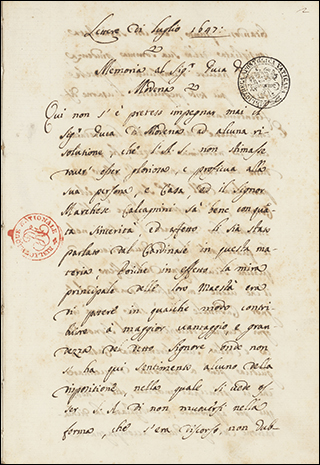 2
Lettere di luglio 1647:
Memoria al Sig.r Duca di
Modena
BIBLIOTECA APOSTOLICA VATICANA
Qui non s'è preteso impegnar mai il
Sig.r Duca di Modena ad alcuna ri-
solutione, che S. A. S. non stimasse
esser gloriosa, e proficua alla
sua persona e Casa, ed il signor
Marchese Calcagnini sà bene con qua-
ta sincerità ed affetto li sia stato
parlato dal Cardinale in questa ma-
teria Poiche in effetto la mira
principale delle loro Maestà era
di potere in qualche modo contri-
buire à maggior vantaggio, e gran-
dezza de detto Signore onde non
si ha qui sentimento alcuno della
dispositione, nella quale si vede es-
ser S. A. di non muoversi nella
forma, che s'era discorso, non dub-
BIBLIOTHEQUE NATIONALE